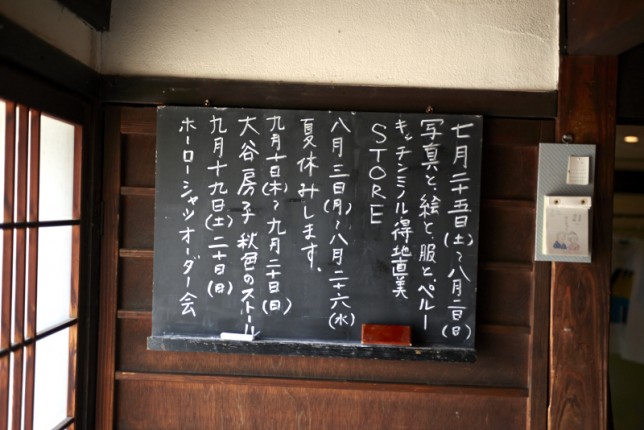 七月二十五日(土)〜八月二日(日)
写真と、絵と、服と、ペルー
キッチンミノル 得地直美
STORE
八月三日(月)〜八月二十六(水)
夏休みします。
九月十日(木)〜九月二十日(日)
大谷房子 秋色のストール
九月十九日(土)二十日(日)
ホーローシャツオーダー会
21